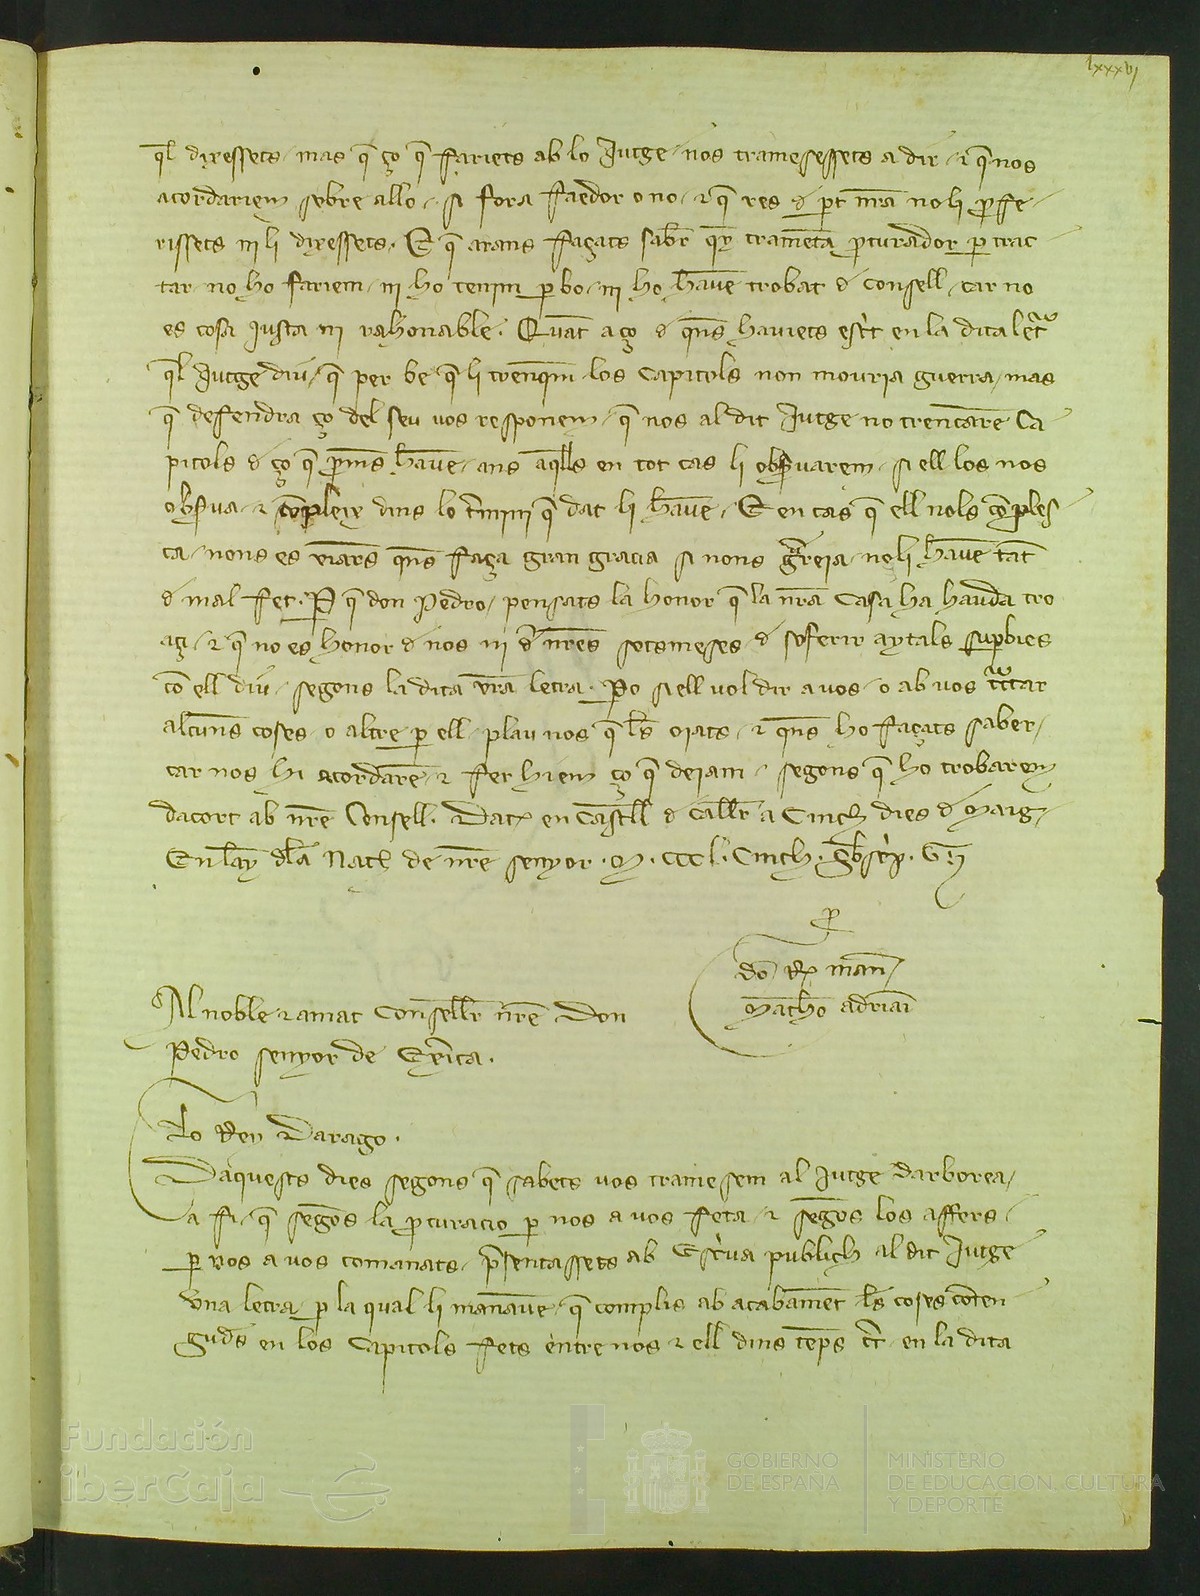 lxxxvj
q̄l dixessets / mas q̄ ço q̄ fariets ab lo Jutge / nos tramesessets a dir / ⁊ q̄ nos
acordariem sobre allo / si fora faedor o no / ⁊ q̄ res d̄ ꝑt nr̄a no li profe
rissets ni li dixessets. E q̄ arans façats sab̄r q̄ tram̄eta ꝓcurador ꝑ trac
tar / no ho fariem / ni ho tenim ꝑ bo / ni ho hauē trobat d̄ consell / car no
es cosa iusta ni rahonable. Quāt aço d̄ q̄ns hauiets esc̄t en la dita let̄
q̄l Jutge diu / q̄ per be q̄ li trenq̄m los Capitols non mouria guerra / mas
q̄ defendra ço del seu vos responem / q̄ nos al dit Jutge no trencarē Ca
pitols d̄ ço q̄ ꝓm̄s hauē / ans aq̄lls en tot cas li obseruarem / si ell los nos
obserua / ⁊ cōpleix dins lo t̄mini q̄ dat li hauē / E en cas q̄ ell nols cōples
ca / nons es viars q̄ns faça gran gracia si nons greia / ne li hauē tāt
d̄ mal fet. Ꝑ q̄ don Pedro / pensats la honor q̄ la nr̄a Casa ha hauda tro
açi / ⁊ q̄ no es honor d̄ nos ni d̄ nr̄es sotsmeses d̄ soferir aytals supbies
cō ell diu / segons la dita vr̄a letra. Ꝑo si ell vol dir a vos / o ab vos tractar
alcuns coses / o altre ꝑ ell / plau nos q̄ l̄s oiats / ⁊ q̄ns ho façats saber /
car nos hi acordarē / ⁊ fer hiem ço q̄ deiam / segons q̄ ho trobarem
dacort ab nr̄e Consell. Dat̄ en Castell d̄ Call̄r a Cinch dies d̄ Maig /
En lāy d̄la Nat̄ de nr̄e senyor. M. CCC L. Cinch.
ꝑ
dō R̄ man̄
Matheō adriaī
Al noble ⁊ amat Conseller nr̄e Don
Pedro senyor de Ex̄ica.
Lo Rey Darago.
Daquests dies segons q̄ sabets vos tramesem al Jutge darborea /
a fi q̄ segōs la ꝓcuracio ꝑ nos a vos feta / ⁊ segōs los affers
ꝑ nos a vos comanats / p̄sentassets ab Esc̄ua publich al dit Jutge
Vna letra / ꝑ la qual li manauē / q̄ complis ab acabamēt l̄s coses cōten
gud̄s en los Capitols fets entre nos ⁊ ell dins tēps c̄t / en la dita
Fundación
iberCaja
GOBIERNO
DE ESPAÑA
MINISTERIO
DE EDUCACIÓN, CULTURA
Y DEPORTE